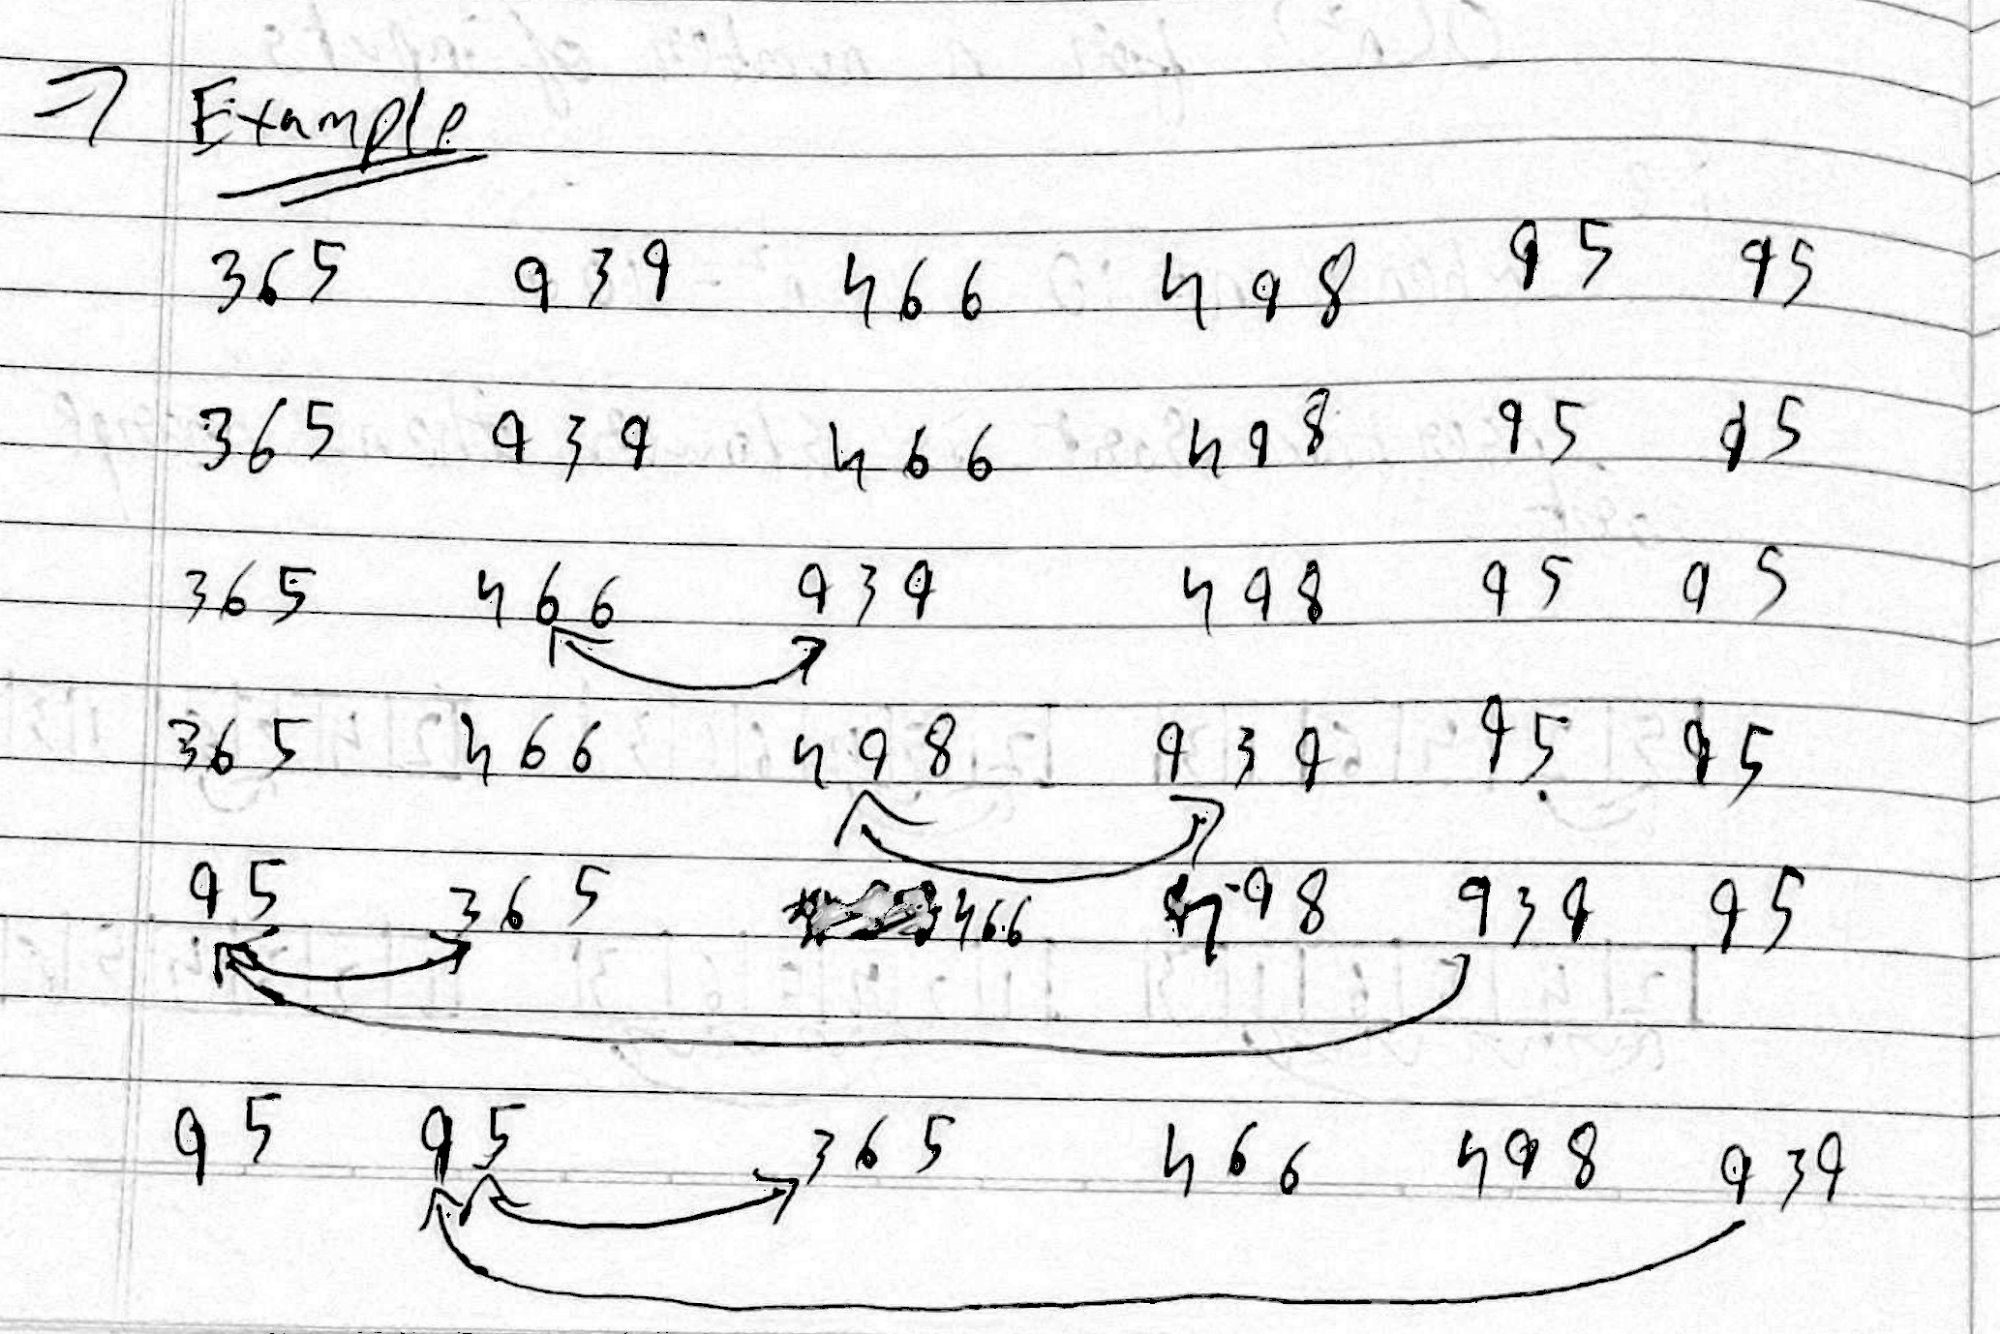 ⇒ Example
365 939 466 498 95 95
365 939 466 498 95 95
365 466 939 498 95 95
365 466 498 939 95 95
95 365 466 498 939 95
95 95 365 466 498 939